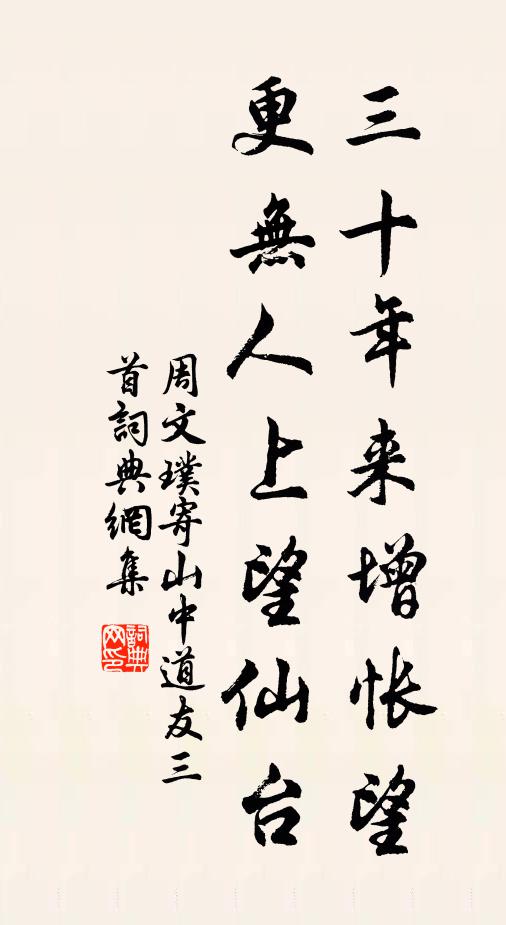 三十年来增怅望
更無人上望仙台
周文璞寄山中道友三
首詞典網集
詞典
网印